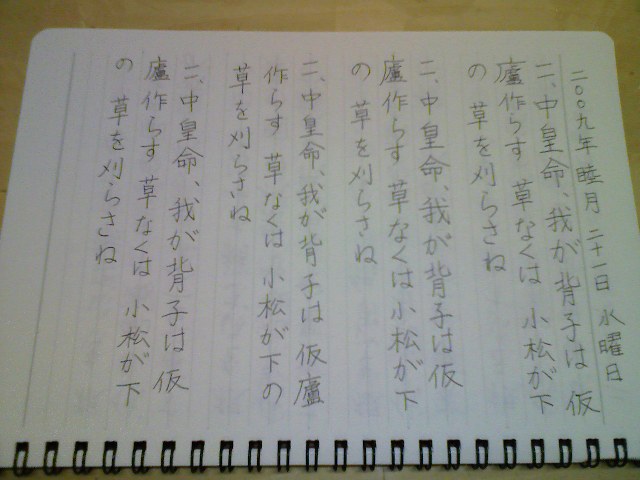 二〇〇九年 睦月 二十一日 水曜日
二、中皇命、我が背子は 仮
廬作らす 草なくは 小松が下
の 草を刈らさね
二、中皇命、我が背子は 仮
廬作らす 草なくは 小松が下
の 草を刈らさね
二、中皇命、我が背子は 仮廬
作らす 草なくは 小松が下の
草を刈らさね
二、中皇命、我が背子は 仮
廬作らす 草なくは 小松が下
の 草を刈らさね